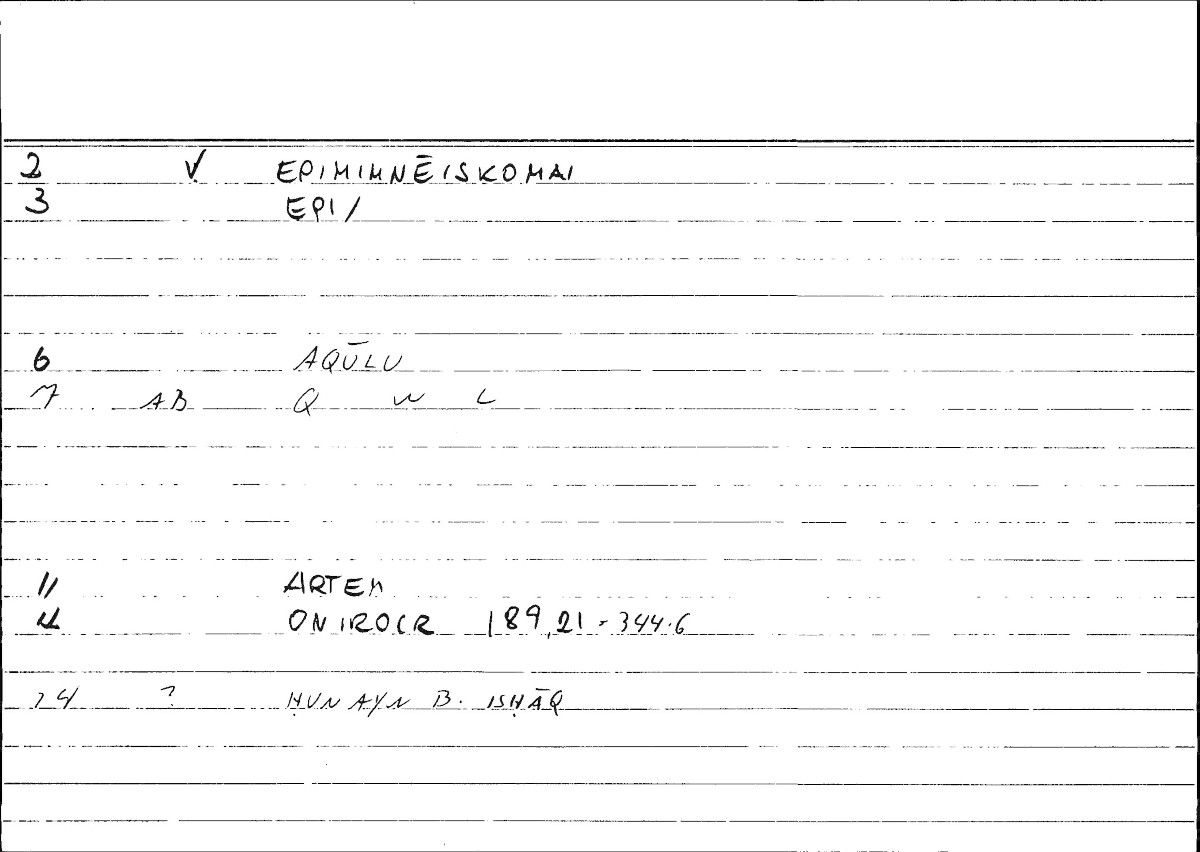 2 V EPIMIMNĒISKOMAI
3 EPI/
6 AQŪLU
7 AB Q W L
11 ARTEM
ONIROCR 189,21 = 344.6
14 ? ḤUNAYN B. ISḤĀQ